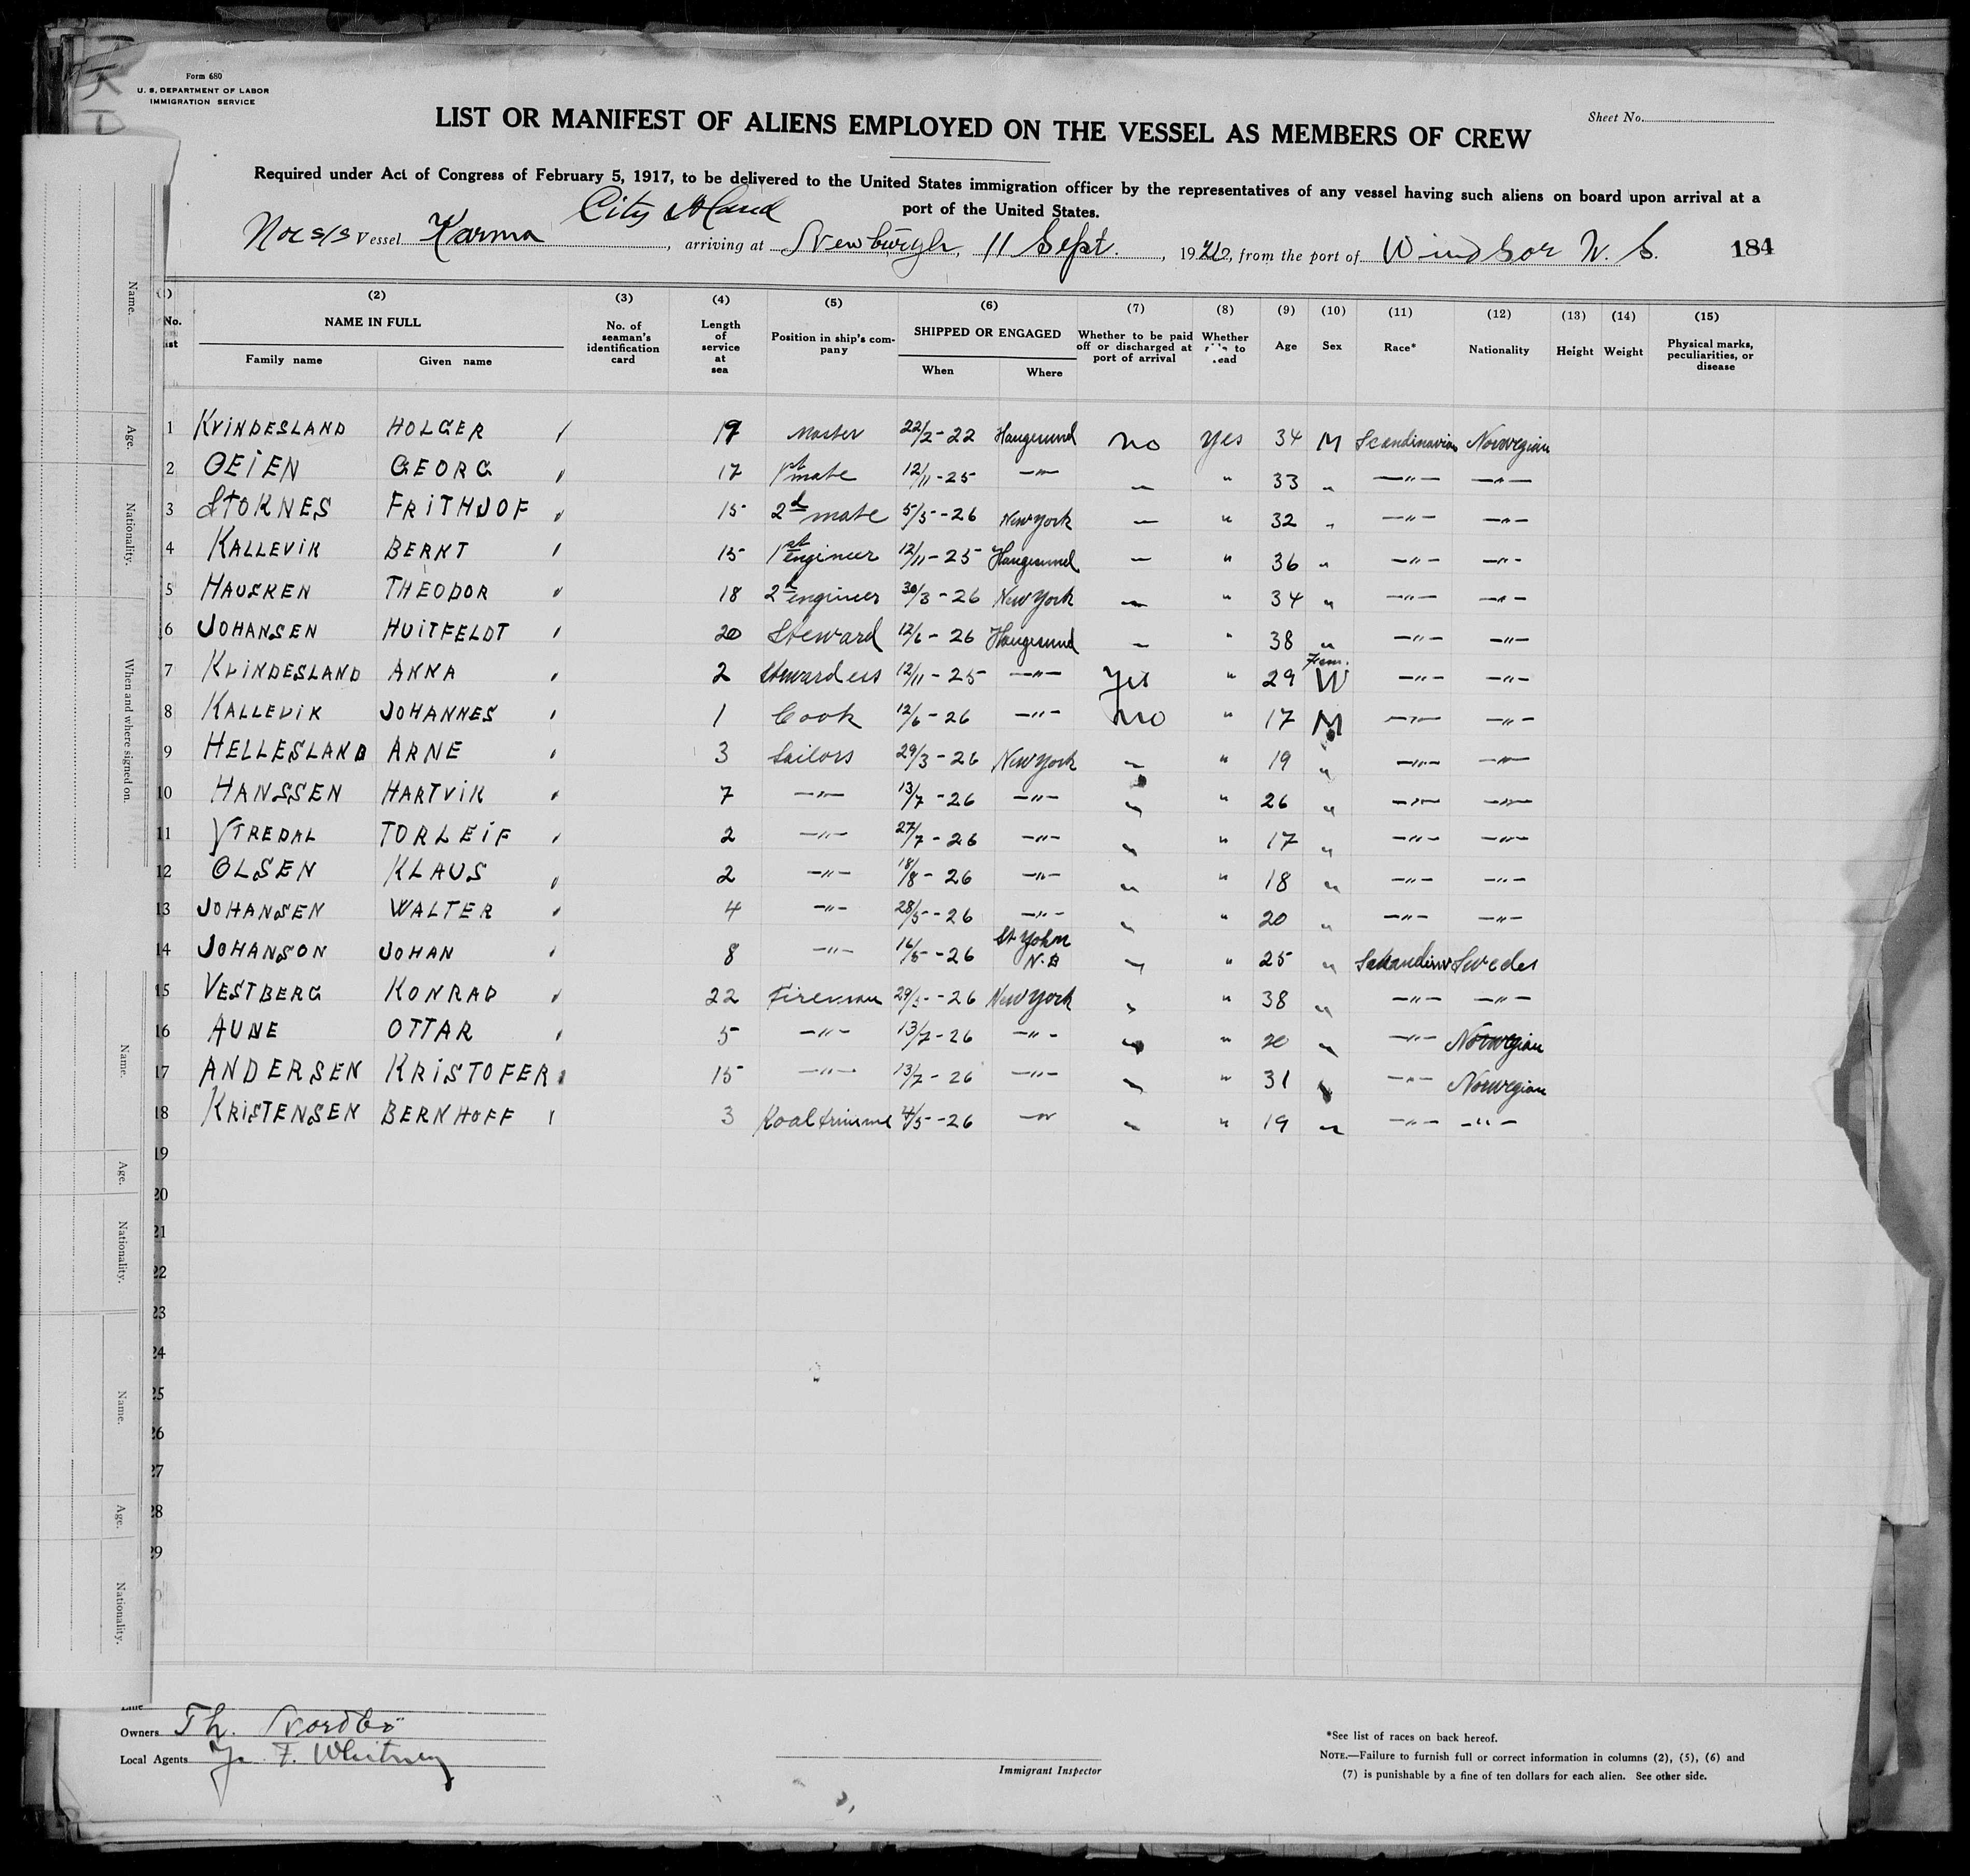 Form 680
U. S. DEPARTMENT OF LABOR
IMMIGRATION SERVICE
Sheet No.
LIST OR MANIFEST OF ALIENS EMPLOYED ON THE VESSEL AS MEMBERS OF CREW
Required under Act of Congress of February 5, 1917, to be delivered to the United States immigration officer by the representatives of any vessel having such aliens on board upon arrival at a
port of the United States.
City Island
Nor s/s Vessel Karma, arriving at Newburgh, 11 Sept., 1926, from the port of Windsor N. S. 184
(2) (3) (4) (5) (6) (7) (8) (9) (10) (11) (12) (13) (14) (15)
No. NAME IN FULL No. of seaman's identification card Length of service at sea Position in ship's company SHIPPED OR ENGAGED Whether to be paid off or discharged at port of arrival Whether to Age Sex Race* Nationality Height Weight Physical marks, peculiarities, or disease
Family name Given name When Where
1 KVINDESLAND HOLGER 19 Master 22/2-22 Haugesund no yes 34 M Scandinavian Norwegian
2 OEIEN GEORG 17 1st mate 12/11-25 —"— — " 33 " —"— —"—
3 STOKNES FRITHJOF 15 2d mate 5/5-26 New York — " 32 " —"— —"—
4 KALLEVIK BERNT 15 1st engineer 12/11-25 Haugesund — " 36 " —"— —"—
5 HAUSKEN THEODOR 18 2d engineer 30/3-26 New York — " 34 " —"— —"—
6 JOHANSEN HUITFELDT 20 Steward 12/6-26 Haugesund — " 38 " —"— —"—
7 KVINDESLAND ANNA 2 Stewardess 12/11-25 —"— yes " 29 Fem. W —"— —"—
8 KALLEVIK JOHANNES 1 Cook 12/6-26 —"— no " 17 M —"— —"—
9 HELLESLAND ARNE 3 Sailors 29/3-26 New York " " 19 " —"— —"—
10 HANSSEN HARTVIK 7 —"— 13/7-26 —"— " " 26 " —"— —"—
11 YTREDAL TORLEIF 2 —"— 27/7-26 —"— " " 17 " —"— —"—
12 OLSEN KLAUS 2 —"— 18/8-26 —"— " " 18 " —"— —"—
13 JOHANSEN WALTER 4 —"— 28/5-26 —"— " " 20 " —"— —"—
14 JOHANSON JOHAN 8 —"— 16/5-26 St John N.B " " 25 " Swedes
15 VESTBERG KONRAD 22 Fireman 29/5-26 New York " " 38 " —"— —"—
16 AUNE OTTAR 5 —"— 13/7-26 —"— " " 20 " —"— Norwegian
17 ANDERSEN KRISTOFER 15 —"— 13/7-26 —"— " " 31 " —"— Norwegian
18 KRISTENSEN BERNHOFF 3 Koaltrimme 4/5-26 —"— " " 19 " —"— —"—
19
20
21
22
23
24
25
26
27
28
29
Name.
Age.
Nationality.
When and where signed on.
Name.
Age.
Nationality.
Name.
Age.
Nationality.
Owners Th. Nordbö
Local Agents F. Whitney
Immigrant Inspector
*See list of races on back hereof.
NOTE.—Failure to furnish full or correct information in columns (2), (5), (6) and
(7) is punishable by a fine of ten dollars for each alien. See other side.